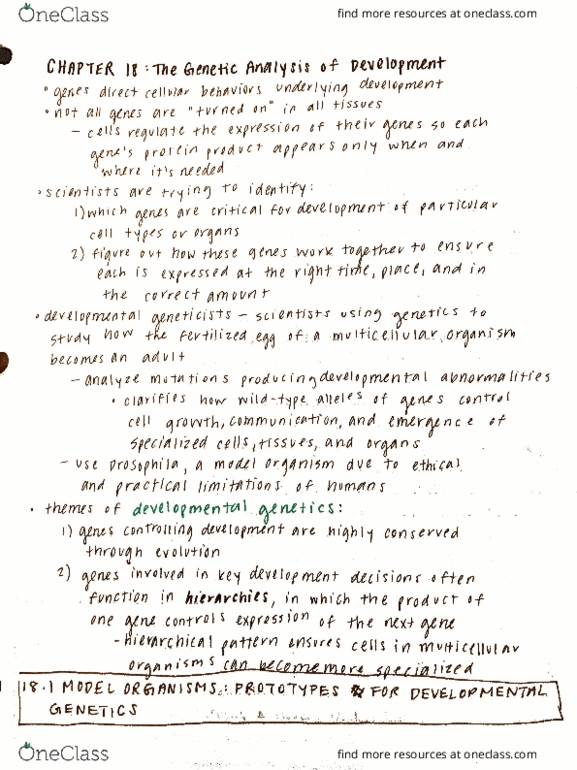 OneClass
find more resources at oneclass.com
CHAPTER 18: The Genetic Analysis of Development
• genes direct cellular behaviors underlying development
• not all genes are "turned on" in all tissues
- cells regulate the expression of their genes so each
gene's protein product appears only when and
where it's needed
• scientists are trying to identify:
1) which genes are critical for development of particular
cell types or organs
2) figure out how these genes work together to ensure
each is expressed at the right time, place, and in
the correct amount
• developmental geneticists - scientists using genetics to
study how the fertilized egg of a multicellular organism
becomes an adult
- analyze mutations producing developmental abnormalities
• clarifies how wild-type alleles of genes control
cell growth, communication, and emergence of
specialized cells, tissues, and organs
- use Drosophila, a model organism due to ethical
and practical limitations of humans
• themes of developmental genetics:
1) genes controlling development are highly conserved
through evolution
2) genes involved in key development decisions often
function in hierarchies, in which the product of
one gene controls expression of the next gene
- hierarchical pattern ensures cells in multicellular
organisms can become more specialized
18.1 MODEL ORGANISMS: PROTOTYPES FOR DEVELOPMENTAL
GENETICS
OneClass
find more resources at oneclass.com